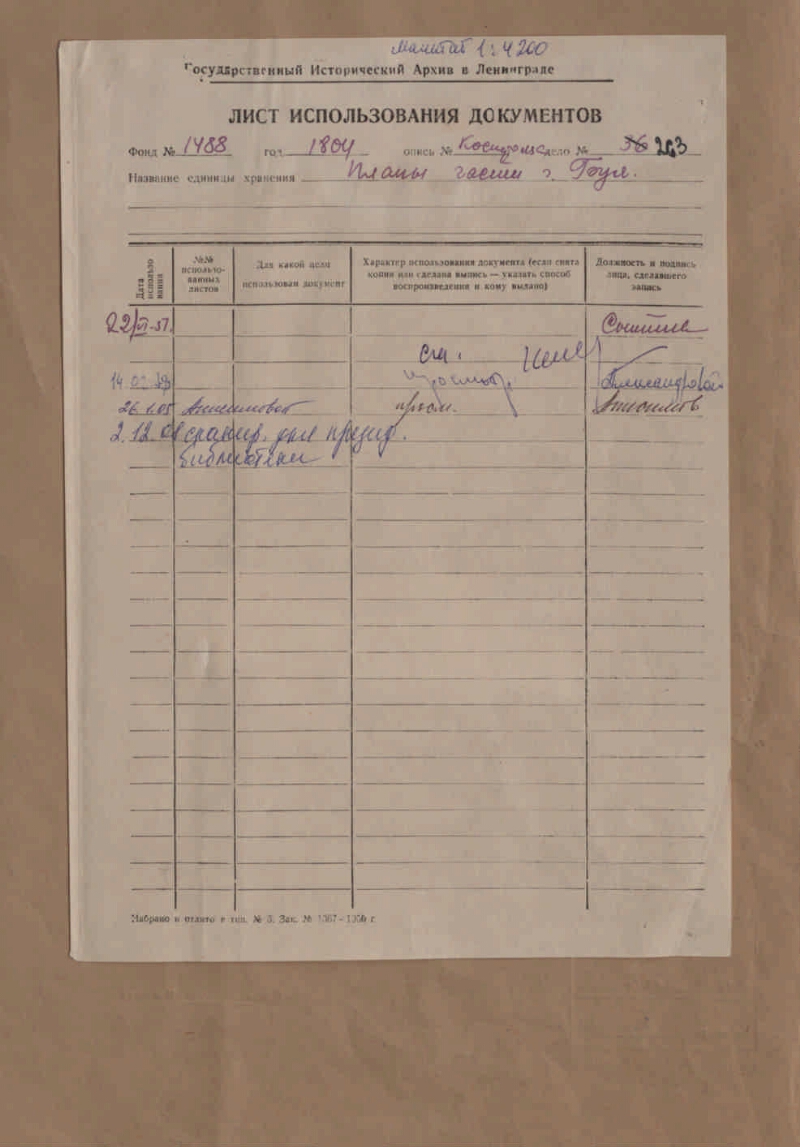 Масштаб 1:4200
Государственный Исторический Архив в Ленинграде
ЛИСТ ИСПОЛЬЗОВАНИЯ ДОКУМЕНТОВ
Фонд № 1488 год 1804 опись № дело № 36 243
Название единицы хранения Планы части г.
Дата использования
№№ использо-
ванных
листов
Для какой цели
использован документ
Характер использования документа (если снята
копия или сделана выпись — указать способ
воспроизведения и кому выдано)
Должность и подпись
лица, сделавшего
запись
22/VI-57.
14.02
26.1.05
2.12. сканир. для презид.
библиотеки
Набрано и отлито в тип. № 3. Зак. №